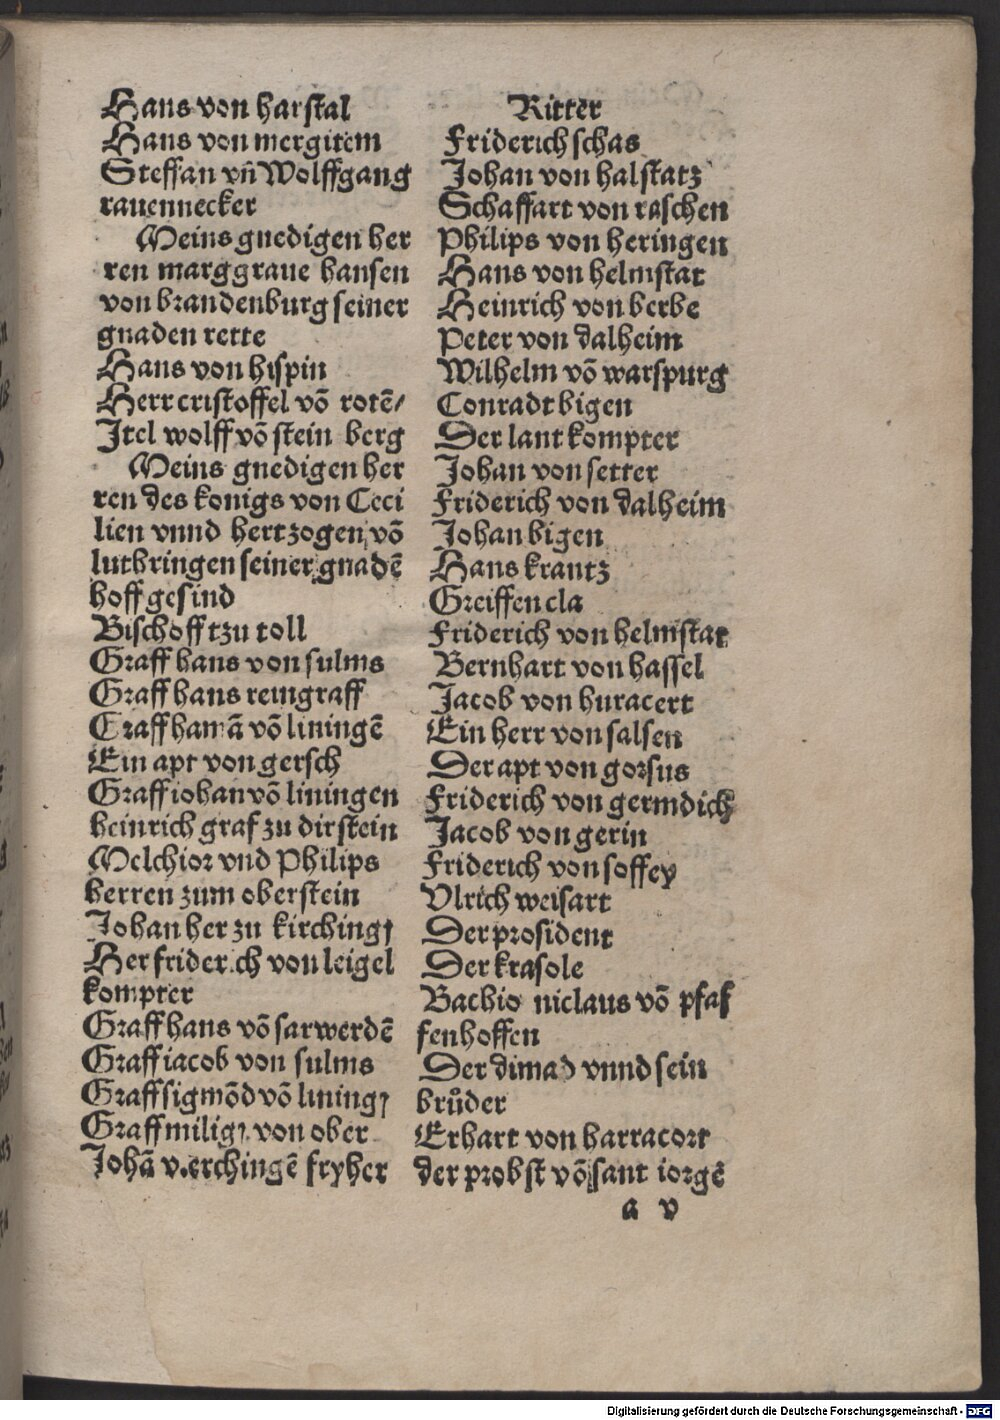 Hans von harstal
Hans von mergitem
Steffan vn̄ Wolffgang
rauennecker
Meins gnedigen her
ren marggraue hansen
von brandenburg seiner
gnaden rette
Hans von hispin
Herr cristoffel vō rotē/
Jtel wolff vō stein berg
Meins gnedigen her
ren des konigs von Ceci
lien vnnd hertzogen vō
luthringen seiner gnadē
hoff gesind
Bischoff tzu toll
Graff hans von sulms
Graff hans reingraff
Graff hamā vō liningē
Ein apt von gersch
Graff iohan vō liningen
heinrich graf zu dirstein
Melchior vnd Philips
herren zum oberstein
Johan her zu kirchingꝫ
Her friderich von leigel
kompter
Graff hans vō sarwerdē
Graff iacob von sulms
Graff sigmōd vō liningꝫ
Graff miligꝫ von ober
Johā v.erchingē fryher
Ritter
Friderich schas
Johan von halstatz
Schaffart von raschen
Philips von heringen
Hans von helmstat
Heinrich von berbe
Peter von dalheim
Wilhelm vō warspurg
Conradt bigen
Der lant kompter
Johan von setter
Friderich von dalheim
Johan bigen
Hans krantz
Greiffen cla
Friderich von helmstat
Bernhart von hassel
Jacob von huracert
Ein herr von salsen
Der apt von gorsus
Friderich von germdich
Jacob von gerin
Friderich von soffey
Vlrich weisart
Der prosident
Der krasole
Bachio niclaus vō pfaf
fenhoffen
Der dimad vnnd sein
brůder
Erhart von harracort
der probst vō sant iorgē
a v
Digitalisierung gefördert durch die Deutsche Forschungsgemeinschaft - DFG